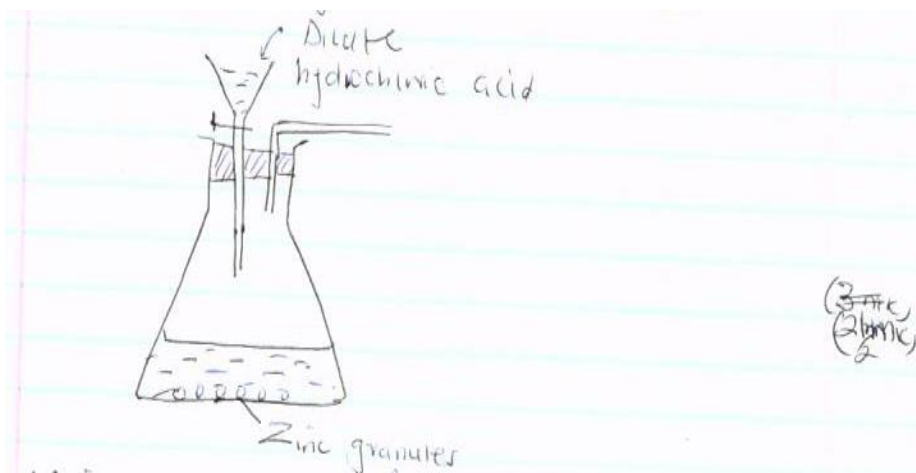 Dilute
hydrochloric acid
Zinc granules